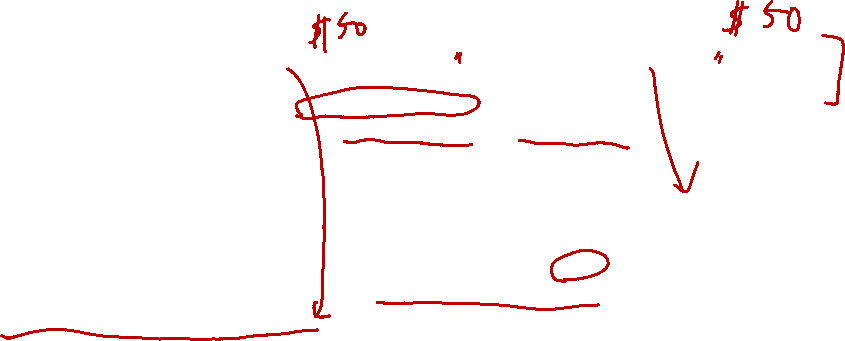 $50
$50